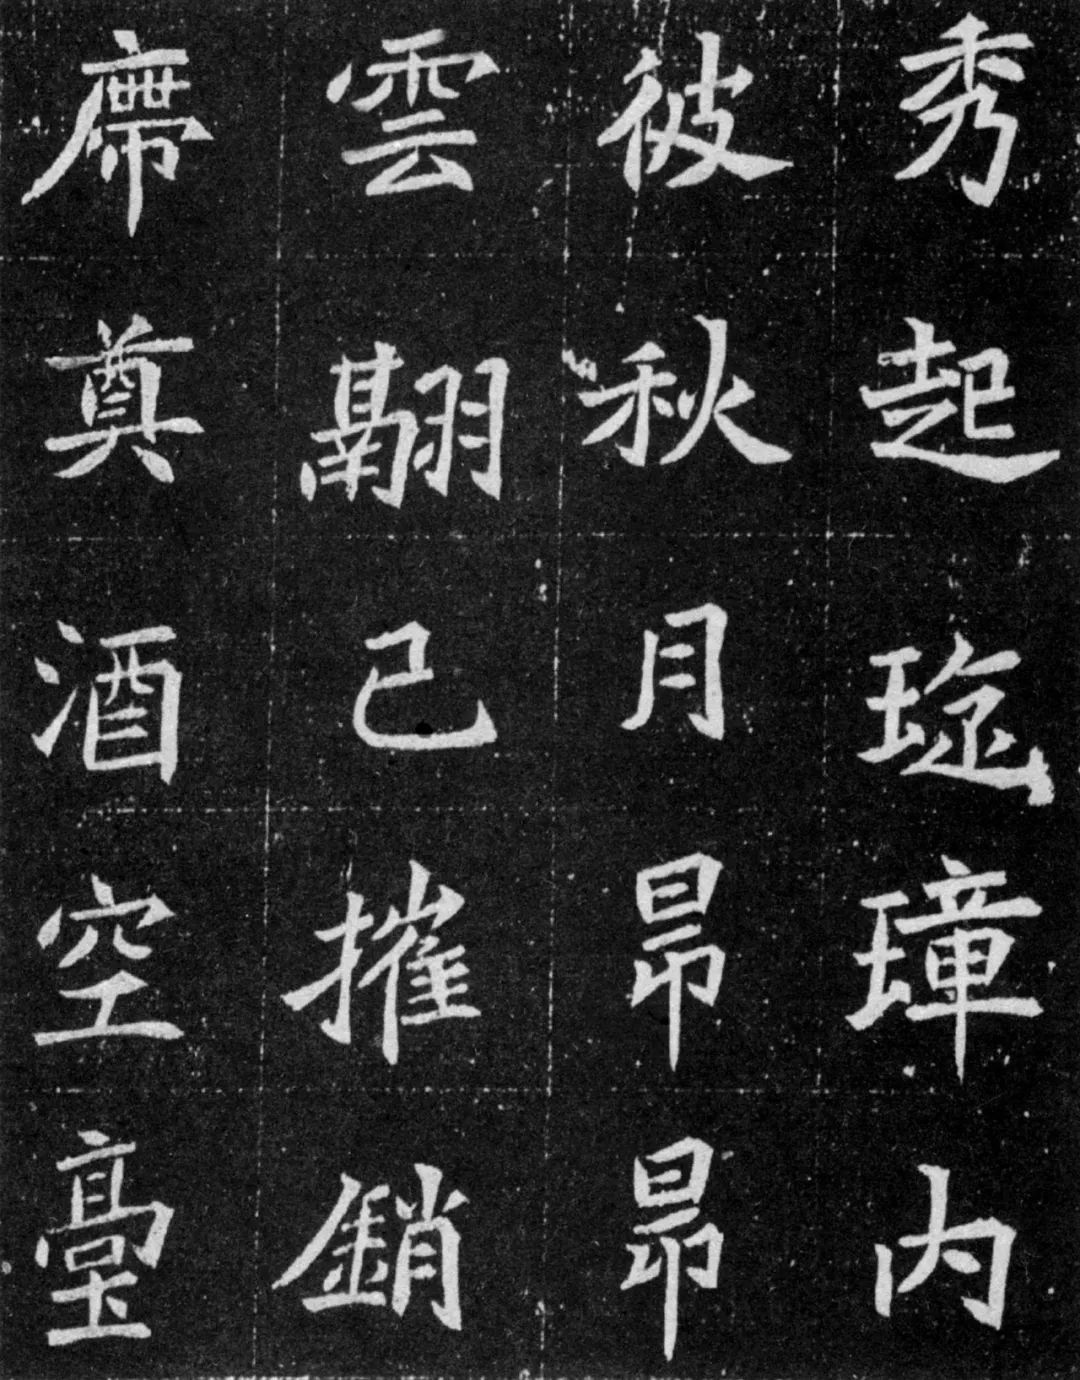 秀起琁璋內
彼秋月昂昂
雲翮已摧銷
席奠酒空臺